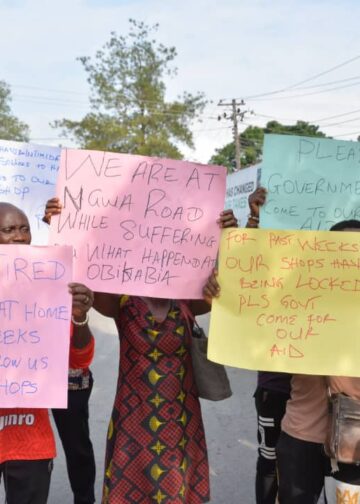 WE ARE AT
NGWA ROAD
WHILE SUFFERING
WHAT HAPPEND AT
OBIKABIA
PLEA
GOVERNM
COME TO OUR
AI
FOR PAST WEEKS
OUR SHOPS HAS
BEING LOCKED
PLS GOVT
COME FOR
OUR
AID
IRED
AT HOME
EEKS
OW US
HOPS
TO OUR
HOP
HAS CHANGED
INRO